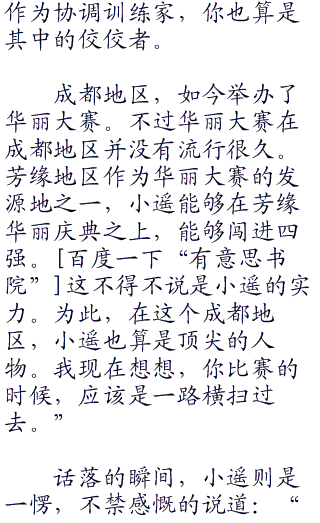 作为协调训练家，你也算是
其中的佼佼者。
成都地区，如今举办了
华丽大赛。不过华丽大赛在
成都地区并没有流行很久。
芳缘地区作为华丽大赛的发
源地之一，小遥能够在芳缘
华丽庆典之上，能够闯进四
强。[百度一下“有意思书
院”]这不得不说是小遥的实
力。为此，在这个成都地
区，小遥也算是顶尖的人
物。我现在想想，你比赛的
时候，应该是一路横扫过
去。”
话落的瞬间，小遥则是
一愣，不禁感慨的说道：“